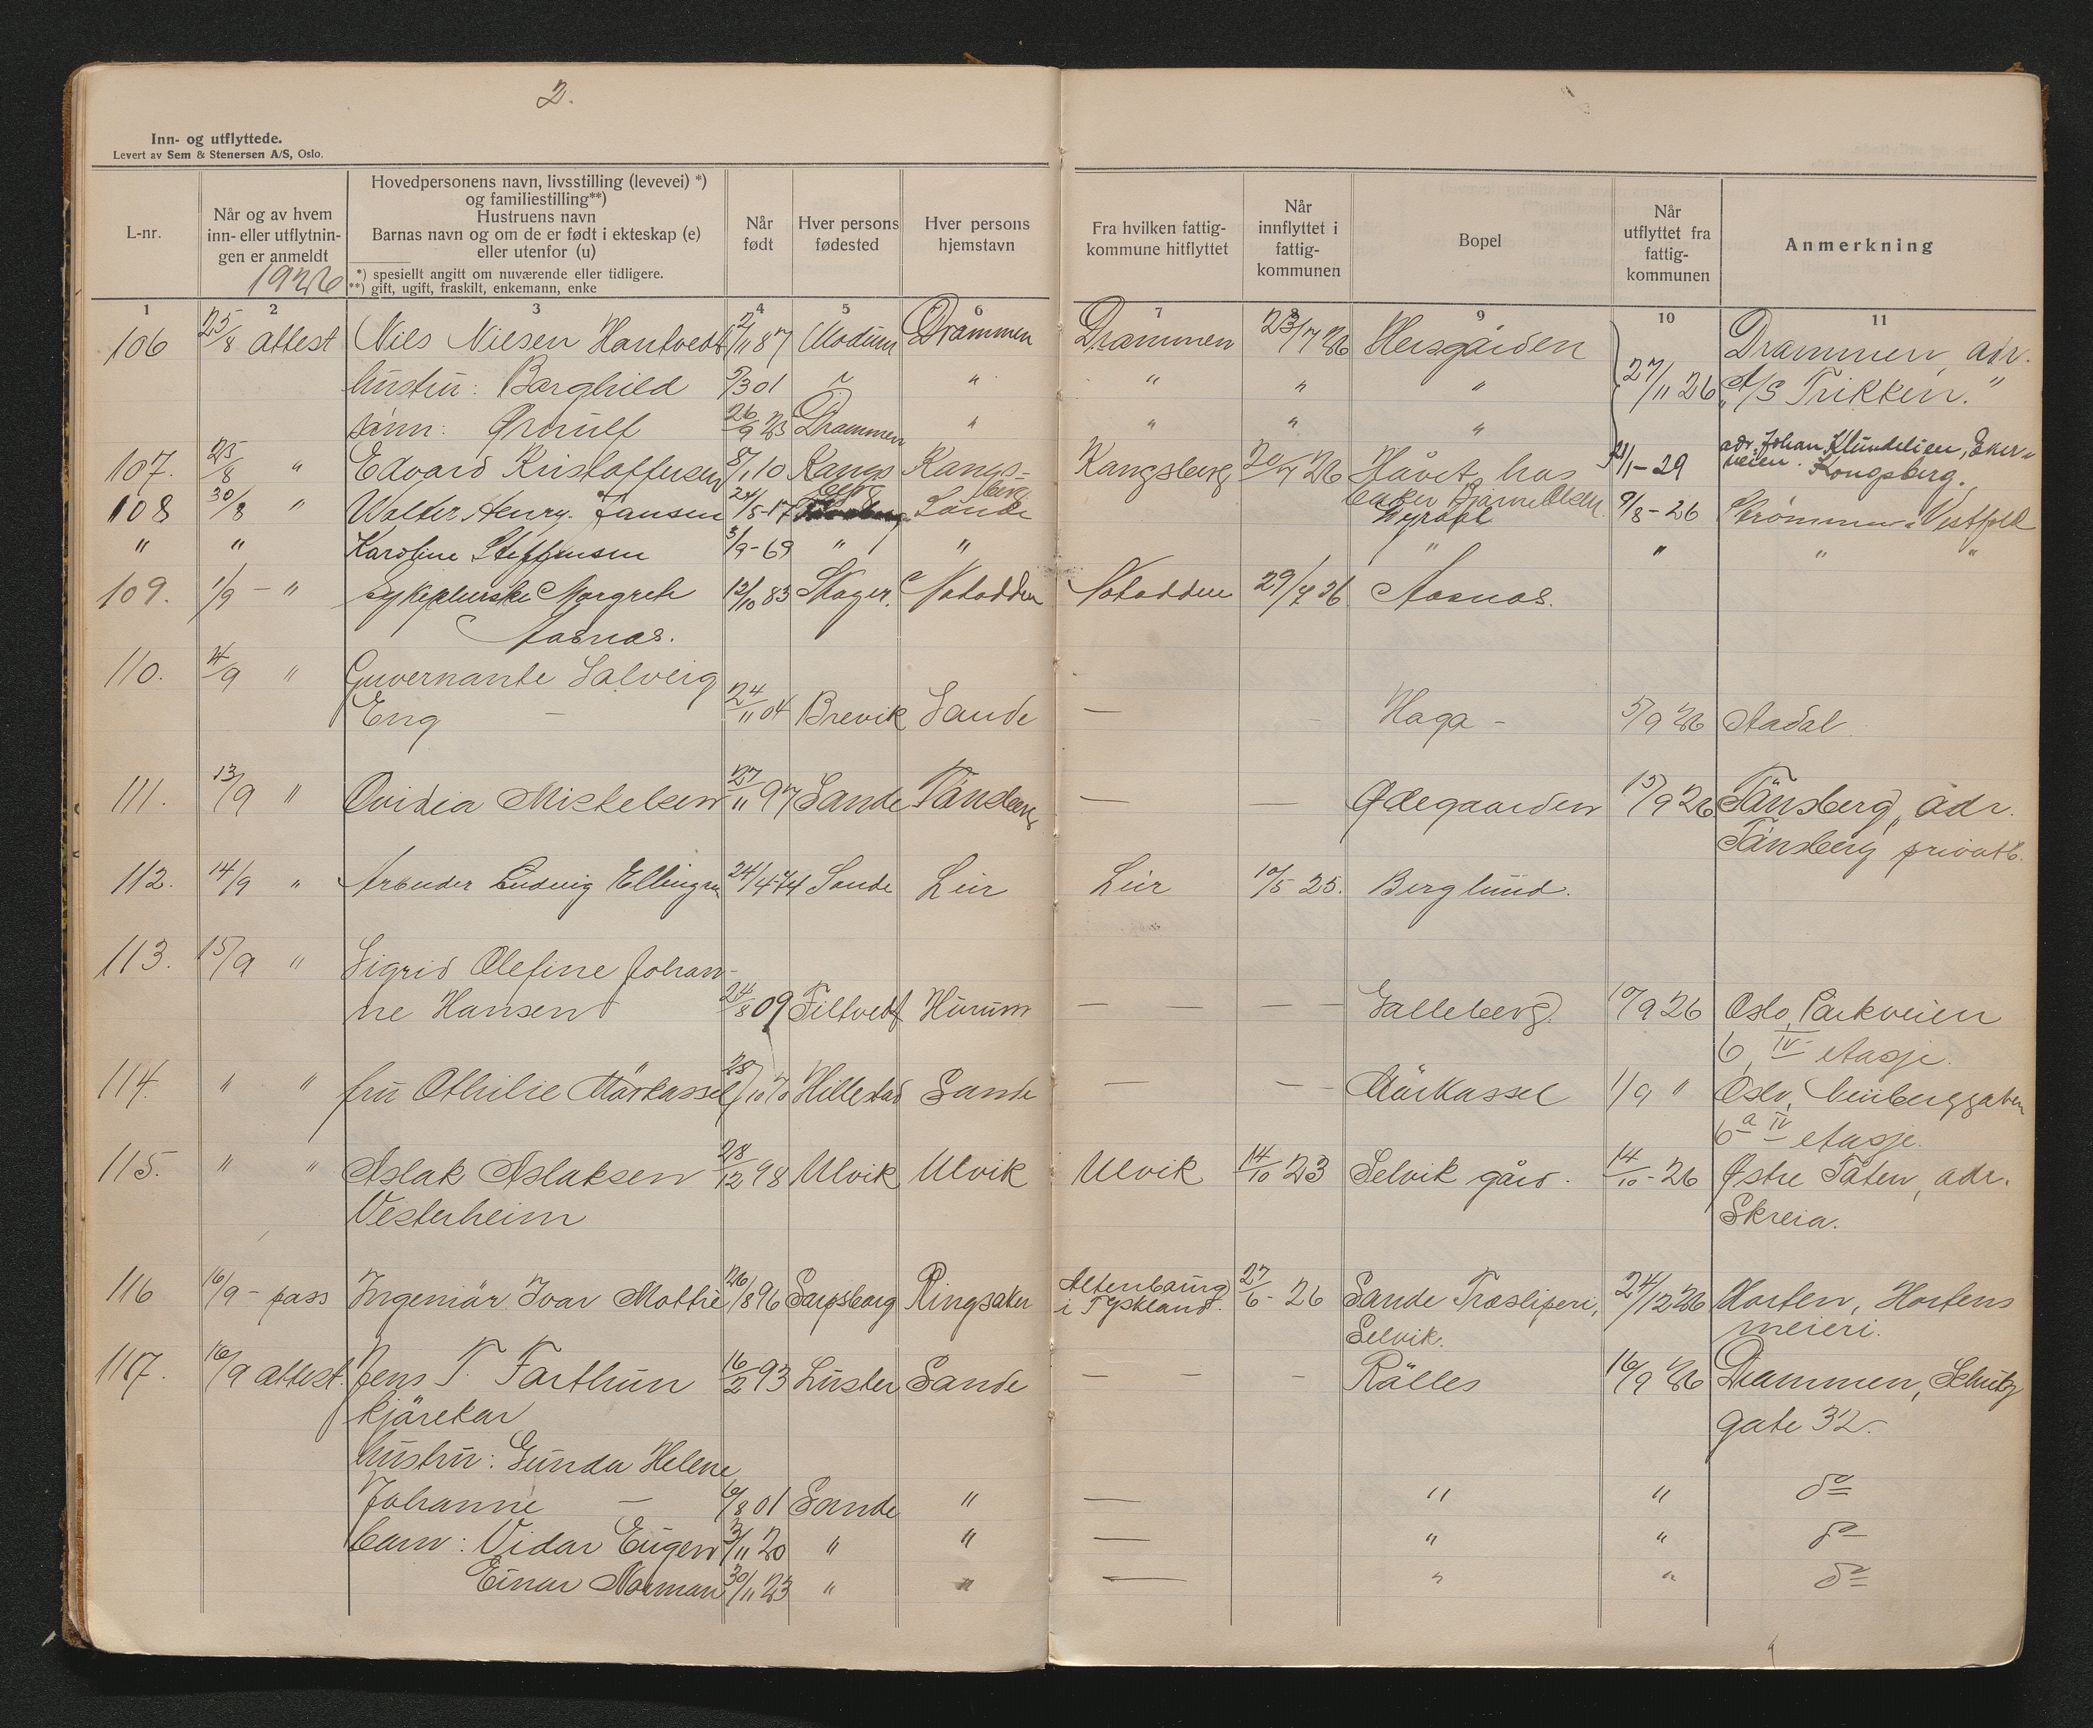 2.
Inn- og utflyttede.
Levert av Sem & Stenersen A/S, Oslo.
L-nr.
Når og av hvem inn- eller utflytningen er anmeldt
1926
Hovedpersonens navn, livsstilling (levevei) *)
og familiestilling**)
Hustruens navn
Barnas navn og om de er født i ekteskap (e)
eller utenfor (u)
*) spesiellt angitt om nuværende eller tidligere.
**) gift, ugift, fraskilt, enkemann, enke
Når født
Hver persons fødested
Hver persons hjemstavn
Fra hvilken fattig-kommune hitflyttet
Når innflyttet i fattig-kommunen
Bopel
Når utflyttet fra fattig-kommunen
Anmerkning
1 2 3 4 5 6 7 8 9 10 11
106 25/8 attest Nils Nilsen Hantvedt 2/11 87 Modum Drammen Drammen 23/7 26 Hersgården 27/11 26 Drammen, adr.
hustru: Borghild 5/3 01 " " " " " A/S Trikken."
sønn: 26/9 23 Drammen " " " "
107. 25/8 " Edvard Kristoffersen 8/1 10 Kongsberg Kongsberg Kongsberg 20/7 26 Håvet, hos 21/1-29 adr. Johan Klundelien, Eker-
veien. Kongsberg.
108 30/8 " Walter Henry Jansen 24/5-17 Sande 9/8-26 Strømmen i Vestfold
" " Karoline Steffensen 3/9-69 " " " " " "
109. 1/9 - " sykepleierske Margreth 12/10 83 Skoger. Notodden Notodden 29/7 26 Aasnas.
Aasnas.
110. 4/9 " Guvernante Solveig
Eng — 24/11 04 Brevik Sande — Haga - 5/9 26 Aadal.
111. 13/9 " Ovidia Mikkelsen 27/11 97 Sande Tønsberg — — Ødegaarden 15/9 26 Tønsberg, adr.
Tønsberg privatb.
112. 14/9 " Arbeider Ludvig Ellingsen 24/4-74 Sande Lier Lier 10/5 25. Berglund.
113. 15/9 " Sigrid Olefine Johan-
ne Hansen 24/8 09 Filtvedt Hurum — — — — Galleberg. 10/9 26 Oslo, Parkveien
6, IV etasje.
114. " " fru Othilie Mørkassel 28/10 70 Hillestad Sande — — Mørkassel 1/9 " Oslo,
6 a IV etasje.
115. " " Aslak Aslaksen 28/12 98 Ulvik Ulvik Ulvik 14/10 23 Selvik gård. 14/10-26 Østre Toten, adr.
Vesterheim Skreia.
116 16/9 - pass Ingeniør Ivar Mothe 26/8 96 Sarpsborg Ringsaker Altenbaurg 27/6-26 Sande Træsliperi, 24/12 26 Horten, Hortens
i Tyskland. Selvik. meieri.
117. 16/9 attest. Jens T. Farthun 16/2 93 Luster Sande — — — Rølles 16/9 26 Drammen, Schultz
kjørekar gate 32.
hustru: Gunda Helene
Johanne — 6/8 01 Sande " — " " do
barn: Vidar Eugen 3/11 20 " " — " " do
Einar Norman 30/11 23 " " — " " do